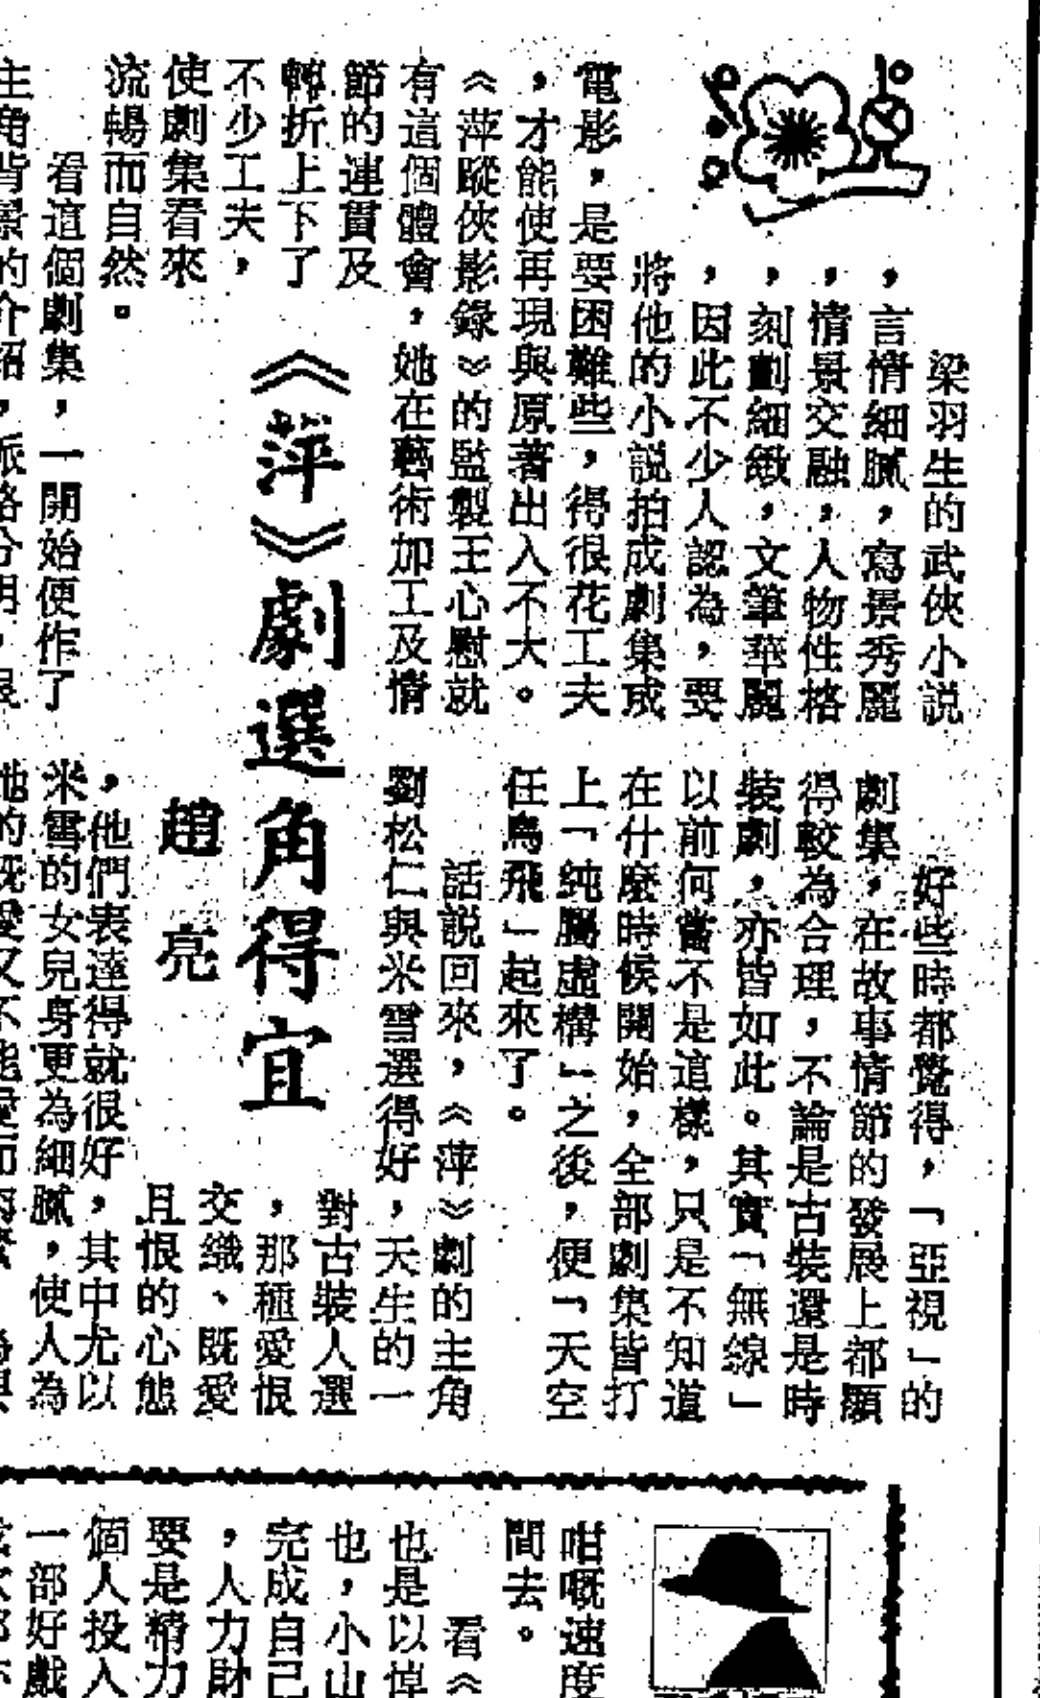 《萍》劇選角得宜
趙亮
梁羽生的武俠小説
，言情細膩，寫景秀麗
，情景交融，人物性格
，刻劃細緻，文筆華麗
，因此不少人認為，要
將他的小説拍成劇集或
電影，是要困難些，得很花工夫
，才能使再現與原著出入不大。
《萍蹤俠影錄》的監製王心慰就
有這個體會，她在藝術加工及情
節的連貫及
轉折上下了
不少工夫，
使劇集看來
流暢而自然。
看這個劇集，一開始便作了
主角背景的介紹，派格分明，
好些時都覺得，「亞視」的
劇集，在故事情節的發展上都顯
得較為合理，不論是古裝還是時
裝劇，亦皆如此。其實「無線」
以前何嘗不是這樣，只是不知道
在什麼時候開始，全部劇集皆打
上「純屬虛構」之後，便「天空
任鳥飛」起來了。
話説回來，《萍》劇的主角
劉松仁與米雪選得好，天生的一
對古裝人選
，那種愛恨
交織、既愛
且恨的心態
，他們表達得就很好，其中尤以
米雪的女兒身更為細膩，使人為
她的既愛又不能愛而
咁嘅速度
間去。
看《
也是以悼
也，小山
完成自己
，人力財
要是精力
個人投入
一部好戲